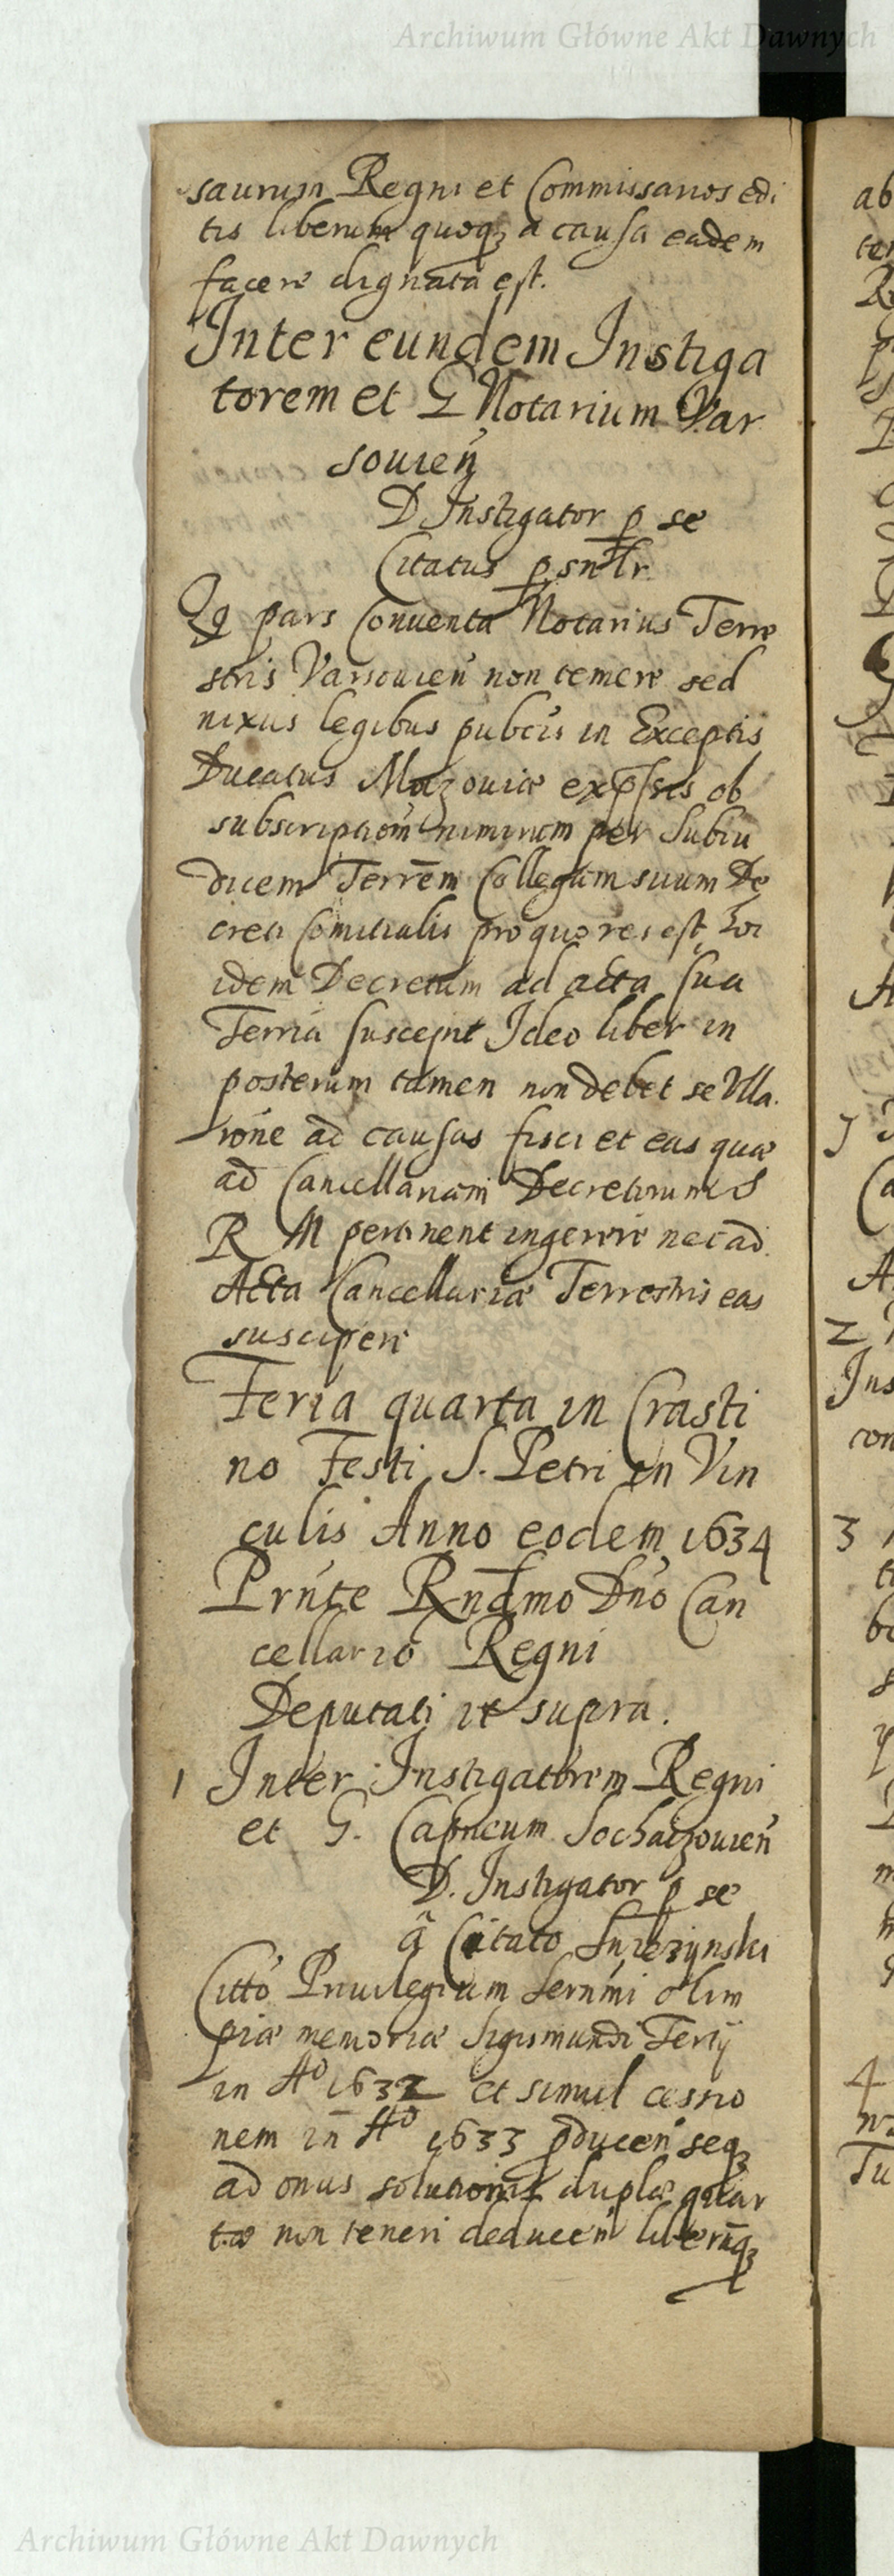 Archiwum Główne Akt Dawnych
saurum Regni et Commissarios edi
tis liberum quoqȝ a causa eadem
facere dignata est.
Inter eundem Instiga
torem et G Notarium Var
souien̄
D Instigator p se
Citatus p̱snlr
Qq pars Conuenta Notarius Terre
stris Varsouien̄ non temere sed
nixus legibus pubcis in Exceptis
Ducatus Mazouiæ exp̄ssis ob
subscriptiom̄ nimirum per Subiu
dicem Terrēm Collegam suum De
creti Comitialis pro quo res est
idem Decretum ad acta sua
Terria suscepit Ideo liber in
posterum tamen non debet se Vlla
rōne ad causas fisci et eas quæ
ad Cancellariam Decretorum S
R M pertinent ingerere nec ad
Acta Cancellariæ Terrestris eas
suscipere
Feria quarta in Crasti
no Festi S. Petri in Vin
culis Anno eodem 1634
Prn̄te Rndmo Dn̄o Can
cellario Regni
Deputati ut supra.
1 Inter Instigatorem Regni
et G. Capneum Sochaczouien̄
D. Instigator p se
ā Citato
Citto Priuilegium Sernmi olim
piæ memoriæ Sigismundi Tertij
in Aº 1632 et simul cessio
nem in Aº 1633 pducen̄ seqȝ
ad onus solutionis duplæ quar
tæ non teneri deducen̄ liberūqȝ
Archiwum Główne Akt Dawnych